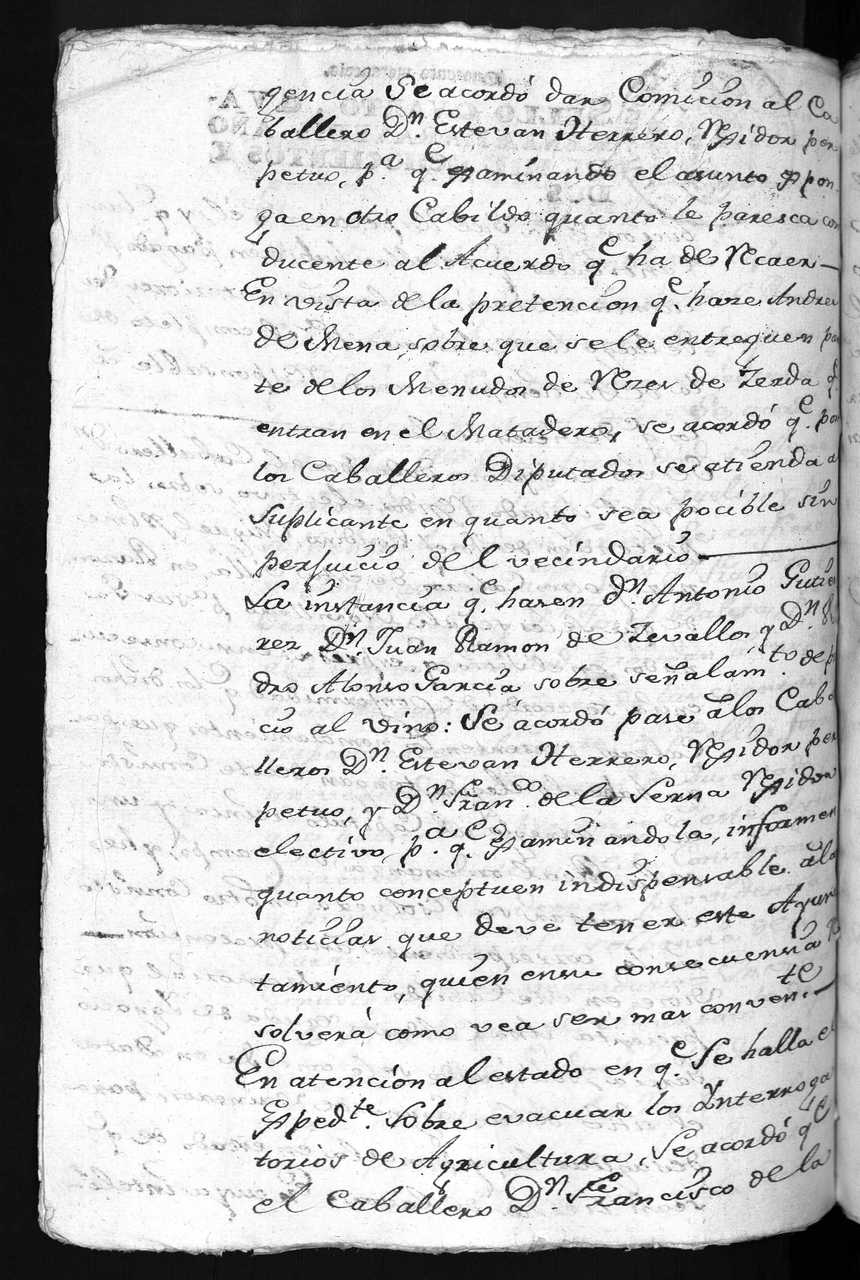 gencia Se acordó dar Comicion al Ca
ballero Dn. Estevan Herrero, Rexidor per
petuo, pa. qe. examinando el asunto expon
ga en otro Cabildo quanto le paresca con
ducente al Acuerdo qe. ha de Recaer
En vista de la pretencion qe. hare Andres
de Mena, sobre que se le entreguen par
te de los Menudos de Rezes de Zerda qe.
entran en el Matadero, se acordó qe. por
los Caballeros Diputados se atienda al
Suplicante en quanto sea pocible sin
perjuicio del vecindario
La instancia qe. hasen Dn. Antonio Gutie
rrez Dn. Juan Ramon de Zevallos y Dn.
dro Alonso Garcia sobre señalamto. de pre
cio al vino: Se acordó pase a los Caba
lleros Dn. Estevan Herrero, Rexidor per
petuo, y Dn. Franco. de la Serna Rexidor
electivo, pa. qe. examinandola, informen
quanto conceptuen indispensable a las
noticias que deve tener este Ayun
tamiento, quien en su consecuensia Re
solverá como vea ser mas convente.
En atencion al estado en qe. Se halla el
Expedte. Sobre evacuar los Ynterroga
torios de Agricultura, Se acordó qe.
el Caballero Dn. Francisco de la